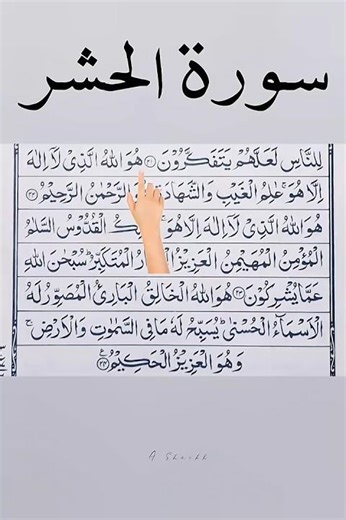 سورة الحشر
لِلنَّاسِ لَعَلَّهُمْ يَتَفَكَّرُوْنَ ﴿٢١﴾ هُوَ اللّٰهُ الَّذِيْ لَاۤ اِلٰهَ
اِلَّا هُوَ ۚ عٰلِمُ الْغَيْبِ وَالشَّهَادَةِ الرَّحْمٰنُ الرَّحِيْمُ ﴿٢٢﴾
هُوَ اللّٰهُ الَّذِيْ لَاۤ اِلٰهَ اِلَّا هُوَ ۚ الْقُدُّوْسُ السَّلٰمُ
الْمُؤْمِنُ الْمُهَيْمِنُ الْعَزِيْزُ الْمُتَكَبِّرُ ؕ سُبْحٰنَ اللّٰهِ
عَمَّا يُشْرِكُوْنَ ﴿٢٣﴾ هُوَ اللّٰهُ الْخَالِقُ الْبَارِئُ الْمُصَوِّرُ لَهُ
الْاَسْمَآءُ الْحُسْنٰى ؕ يُسَبِّحُ لَهٗ مَا فِي السَّمٰوٰتِ وَالْاَرْضِ ۚ
وَهُوَ الْعَزِيْزُ الْحَكِيْمُ ﴿٢٤﴾
A Sheikh